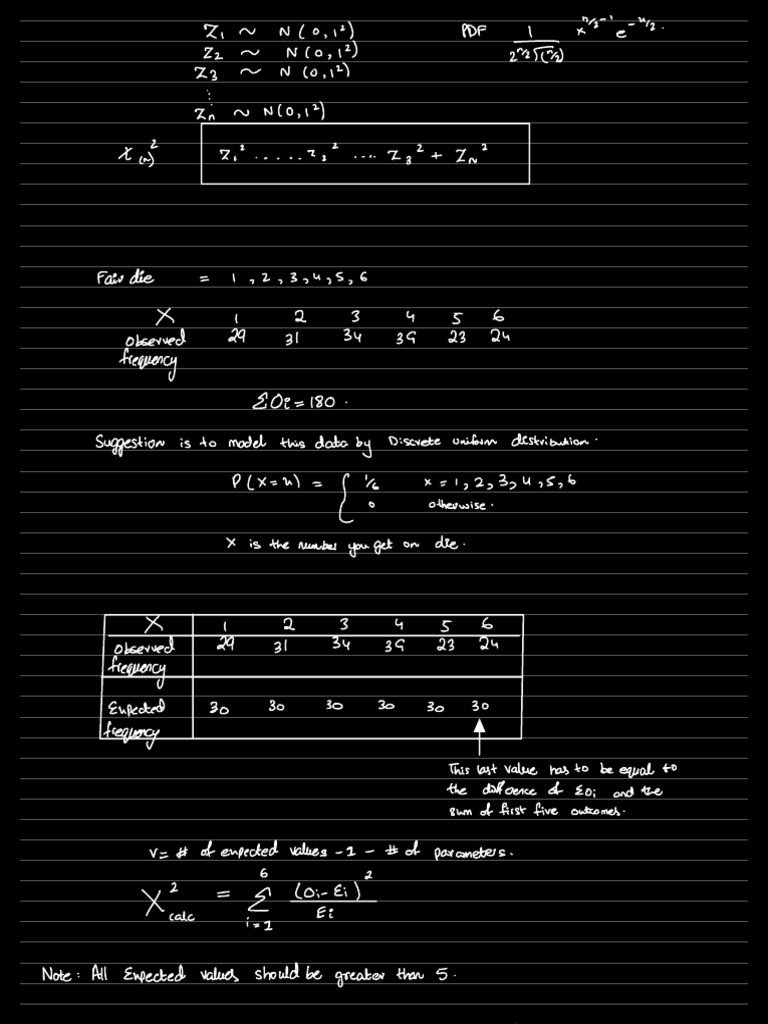 Z₁ ~ N(0,1²)
PDF 1/(2^(n/2) Γ(n/2)) x^(n/2-1) e^(-x/2).
Z₂ ~ N(0,1²)
Z₃ ~ N(0,1²)
⋮
Zn ~ N(0,1²)
χ(n)² Z₁² ..... Z₂² .... Z₃² + Z_N²
Fair die = 1, 2, 3, 4, 5, 6
X 1 2 3 4 5 6
Observed 29 31 34 39 23 24
frequency
ΣOi = 180.
Suggestion is to model this data by Discrete uniform distribution.
P(X=x) = { 1/6 x = 1, 2, 3, 4, 5, 6
0 otherwise.
X is the number you get on die.
X 1 2 3 4 5 6
Observed 29 31 34 39 23 24
frequency
Expected 30 30 30 30 30 30
frequency
This last value has to be equal to
the difference of ΣOi and the
sum of first five outcomes.
v = # of expected values - 1 - # of parameters.
X²calc = Σ_{i=1}^{6} (Oi - Ei)²/Ei
Note: All Expected values should be greater than 5.